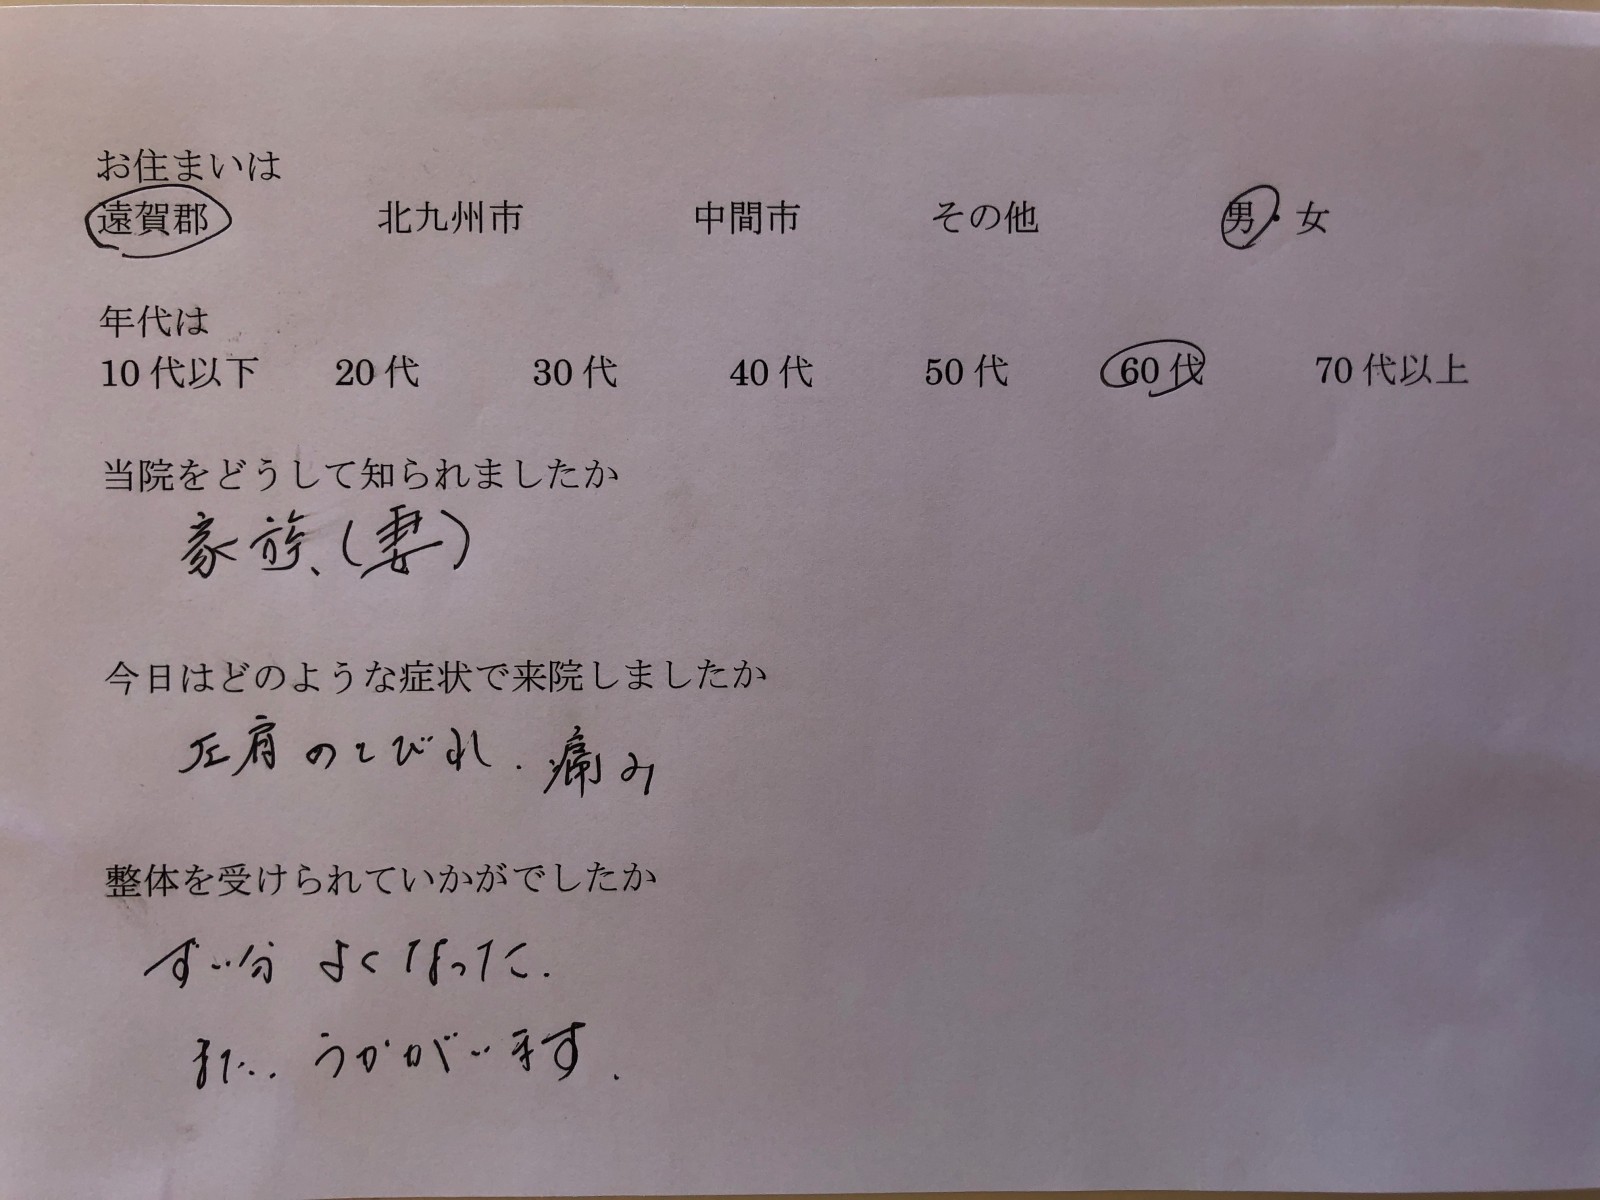 お住まいは
遠賀郡 北九州市 中間市 その他 男・女
年代は
10代以下 20代 30代 40代 50代 60代 70代以上
当院をどうして知られましたか
家族、(妻)
今日はどのような症状で来院しましたか
左肩のしびれ.痛み
整体を受けられていかがでしたか
ずい分 よくなった.
また.. うかがいます.